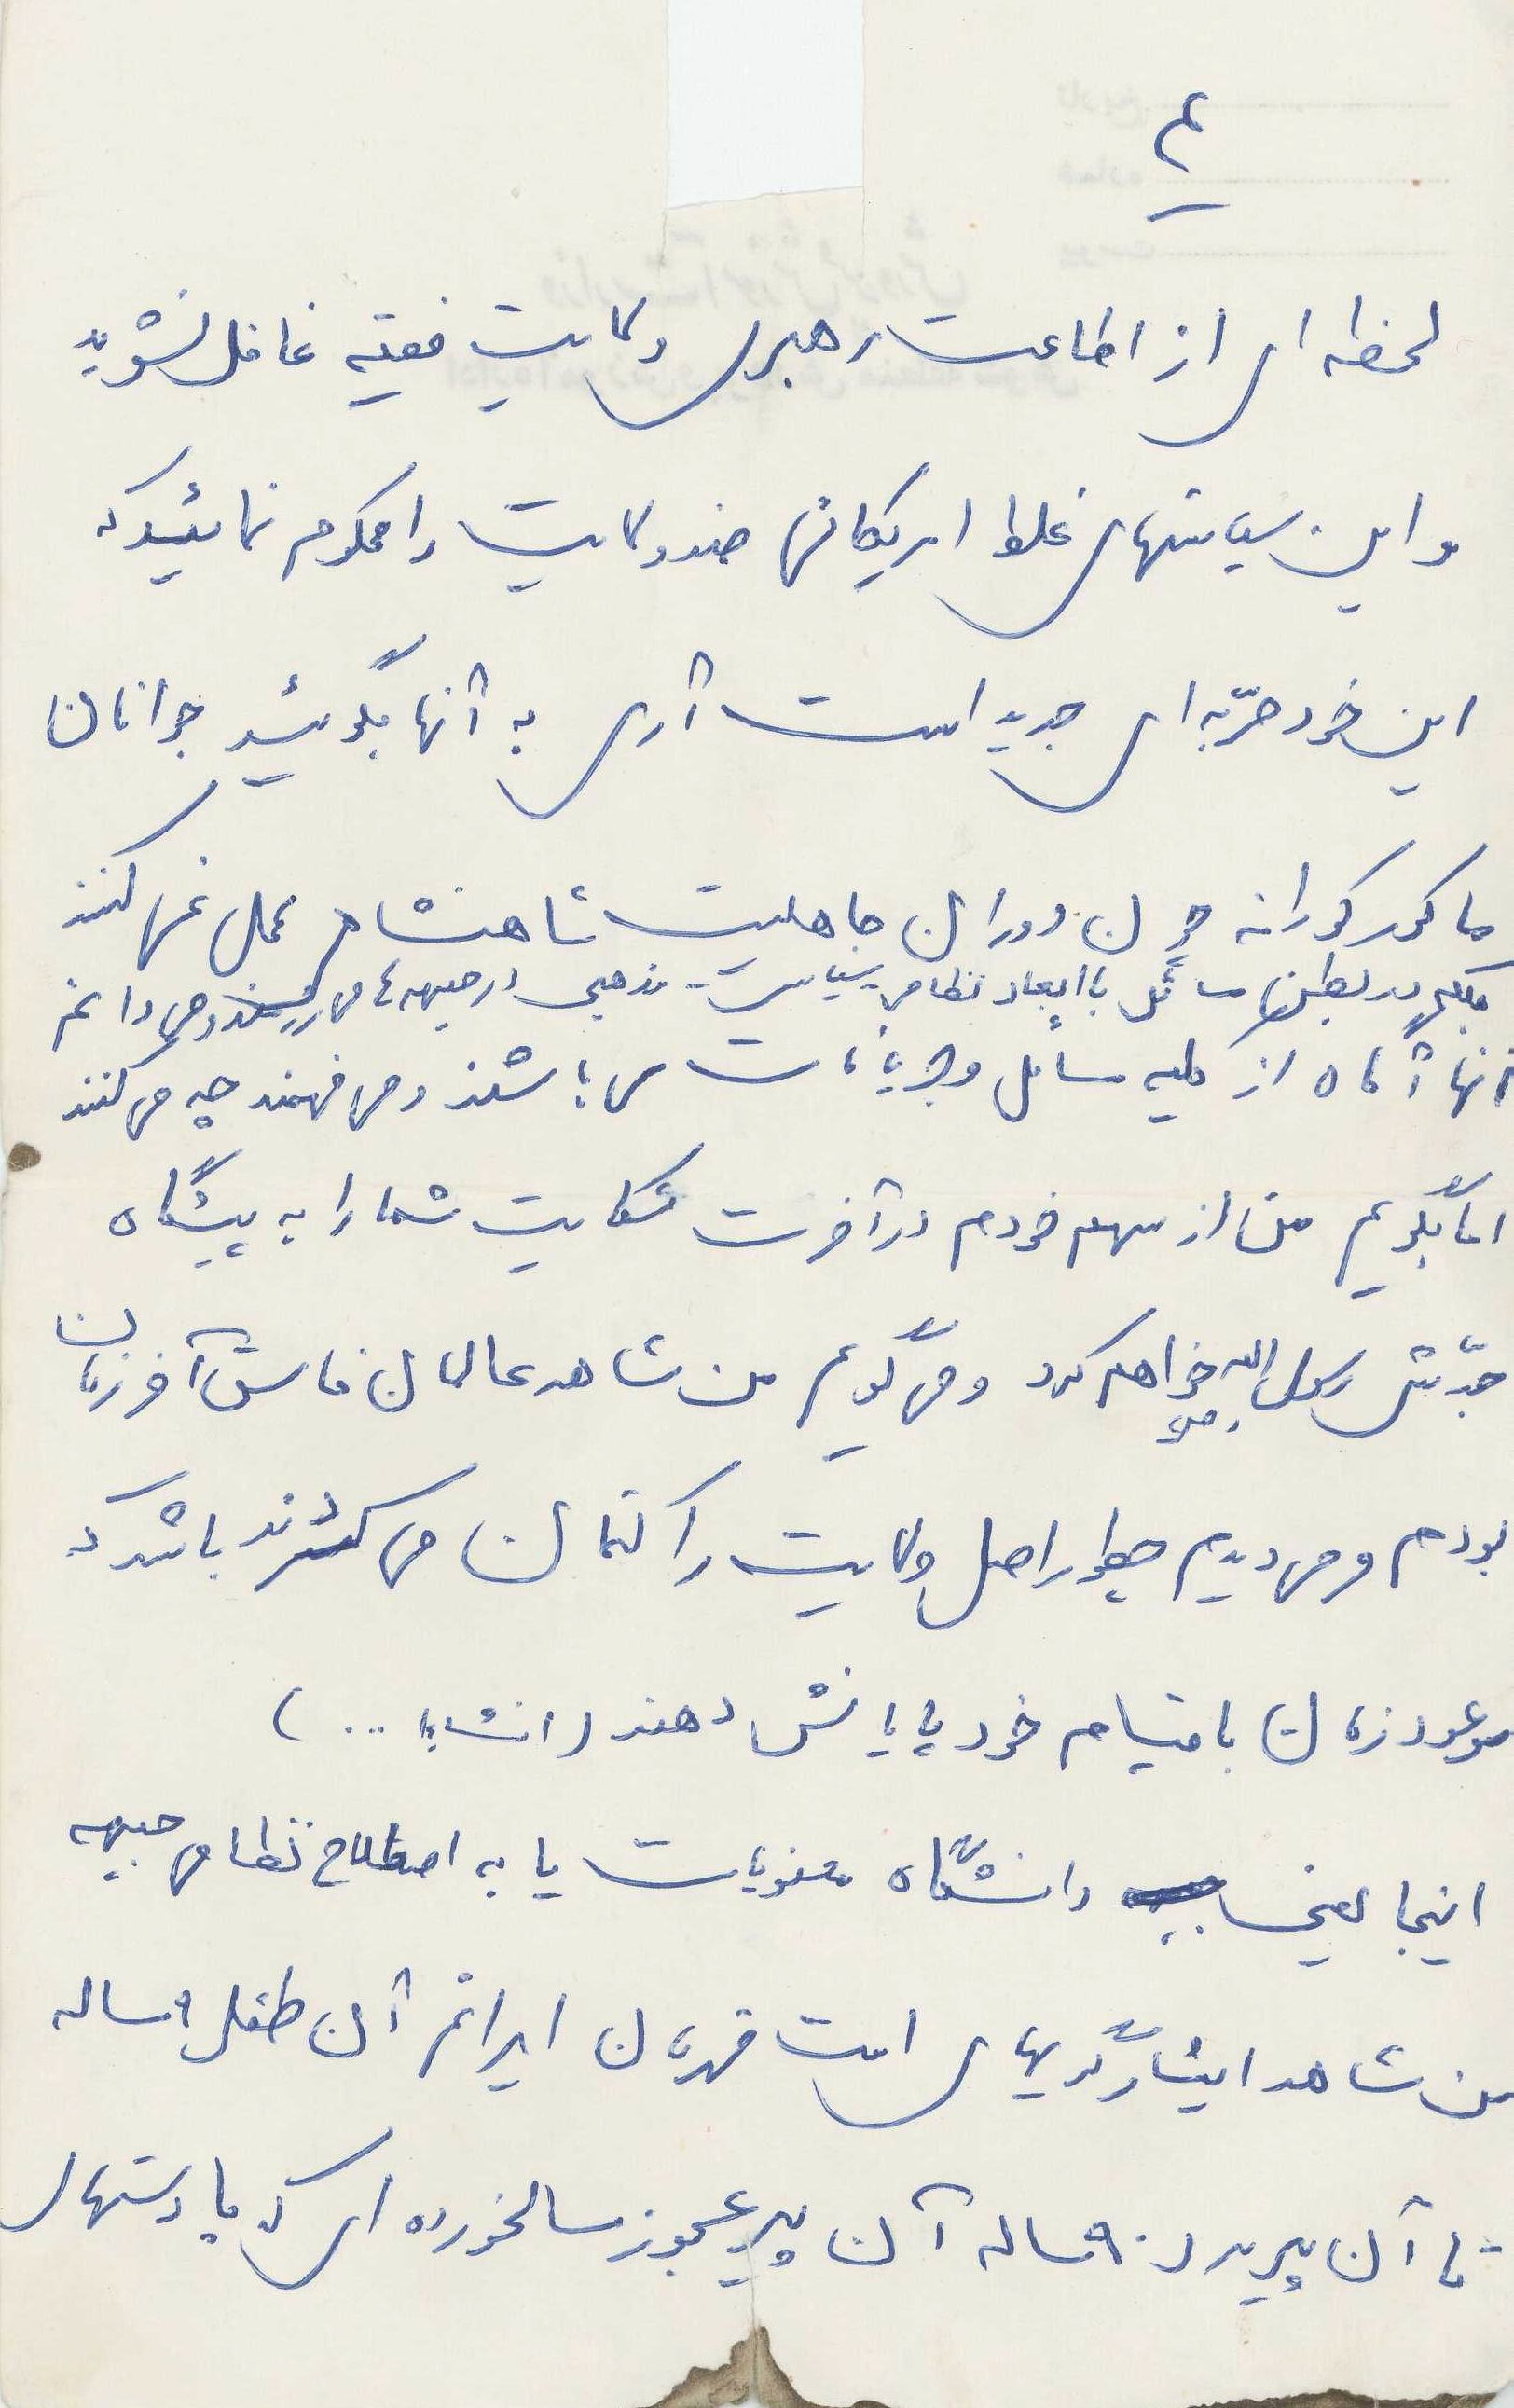 ۴
لحظه ای از اطاعت رهبری ولایت فقیه غافل نشوید
و این سیاستهای غلط امریکائی ضد ولایت را محکوم نمائید که
این خود حربّه ای جدید است آری به آنها بگوئید جوانان
ما کورکورانه چون دوران جاهلیت شاهنشاه عمل نمی کنند
بلکه در بطن مسائل با ابعاد نظامی سیاسی مذهبی در جبهه ها می
آنها آگاه از کلیه مسائل و جریانات می باشند و می فهمند چه می کنند
امّا بگویم من از سهم خودم در آخرت شکایت شما را به پیشگاه
جدّتش رسول الله ص خواهم کرد و می گویم من شاهد عالمان فاسق آخر زمان
بودم و می دیدم چطور اصل ولایت را کتمان می کردند باشد که
موعود زمان با قیام خود پایانش دهند (انشاء ا...)
اینجا یعنی دانشگاه معنویات یا به اصطلاح نظامی جبهه
من شاهد ایثارگریهای امت قهرمان ایرانم آن طفل ۹ ساله
تا آن پیرمرد ۹۰ ساله آن پیر عجوز سالخورده ای که با دستهای